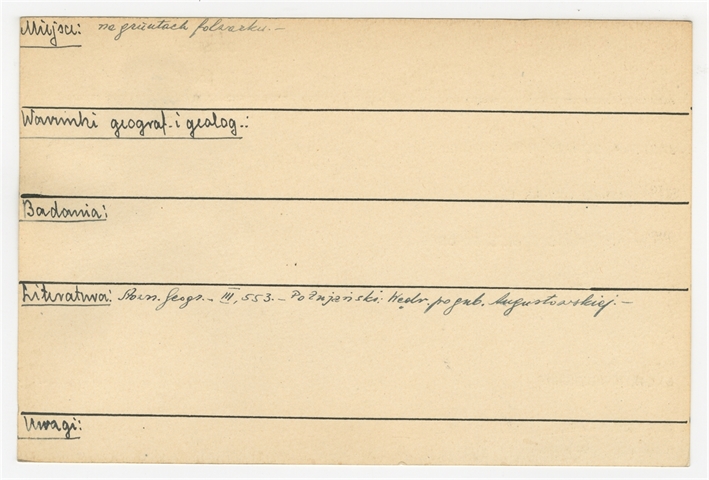 Miejsce: na gruntach folwarku. —
Warunki geograf. i geolog.:
Badania:
Literatura: Słown. Geogr. — III, 553. — Połujański. Wędr. po gub. Augustowskiej. —
Uwagi: